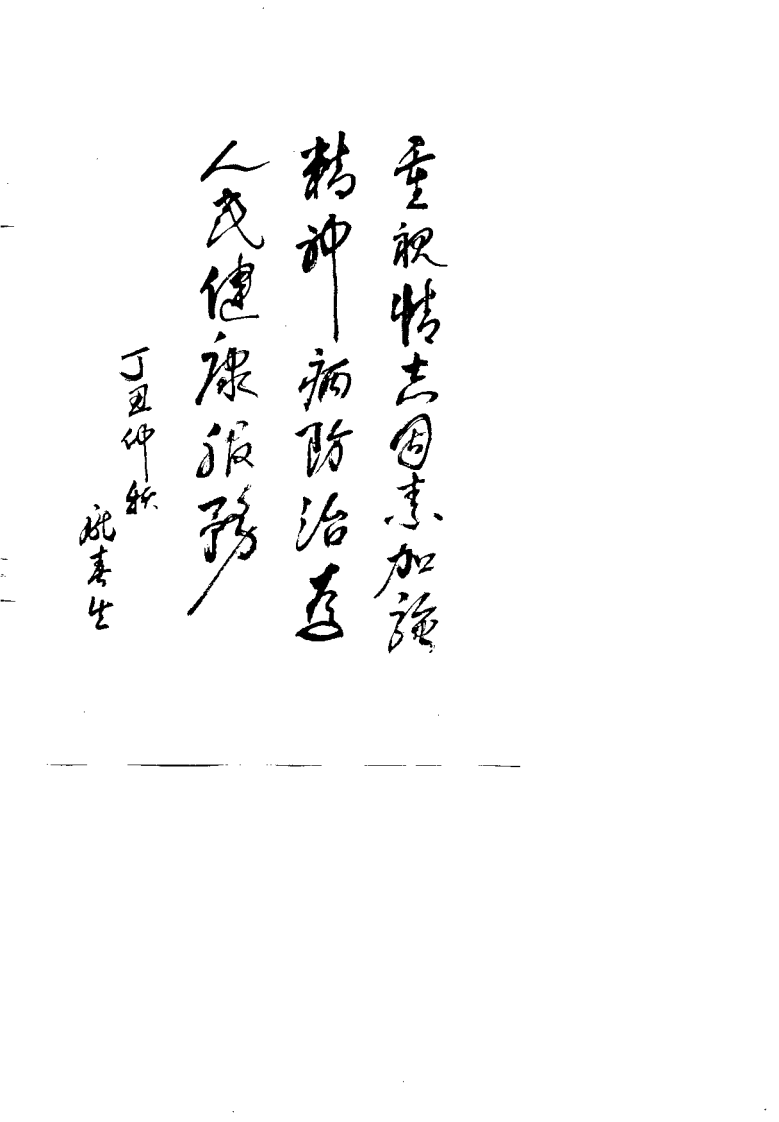 重视情志因素加强
精神病防治为
人民健康服務
丁丑仲秋
庞春生